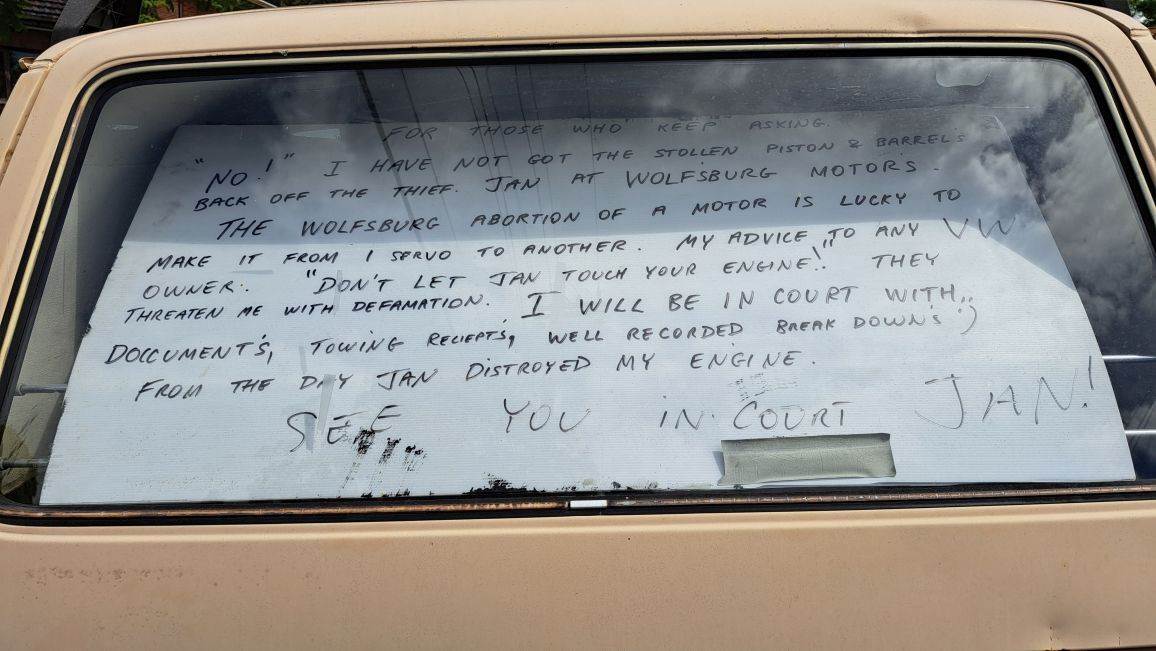 FOR THOSE WHO KEEP ASKING.
"NO!" I HAVE NOT GOT THE STOLLEN PISTON & BARREL'S
BACK OFF THE THIEF. JAN AT WOLFSBURG MOTORS.
THE WOLFSBURG ABORTION OF A MOTOR IS LUCKY TO
MAKE IT FROM 1 SERVO TO ANOTHER. MY ADVICE TO ANY VW
OWNER. "DON'T LET JAN TOUCH YOUR ENGINE!" THEY
THREATEN ME WITH DEFAMATION. I WILL BE IN COURT WITH..
DOCCUMENT'S, TOWING RECIEPTS, WELL RECORDED BREAK DOWN'S :)
FROM THE DAY JAN DISTROYED MY ENGINE.
SEE YOU IN COURT JAN!